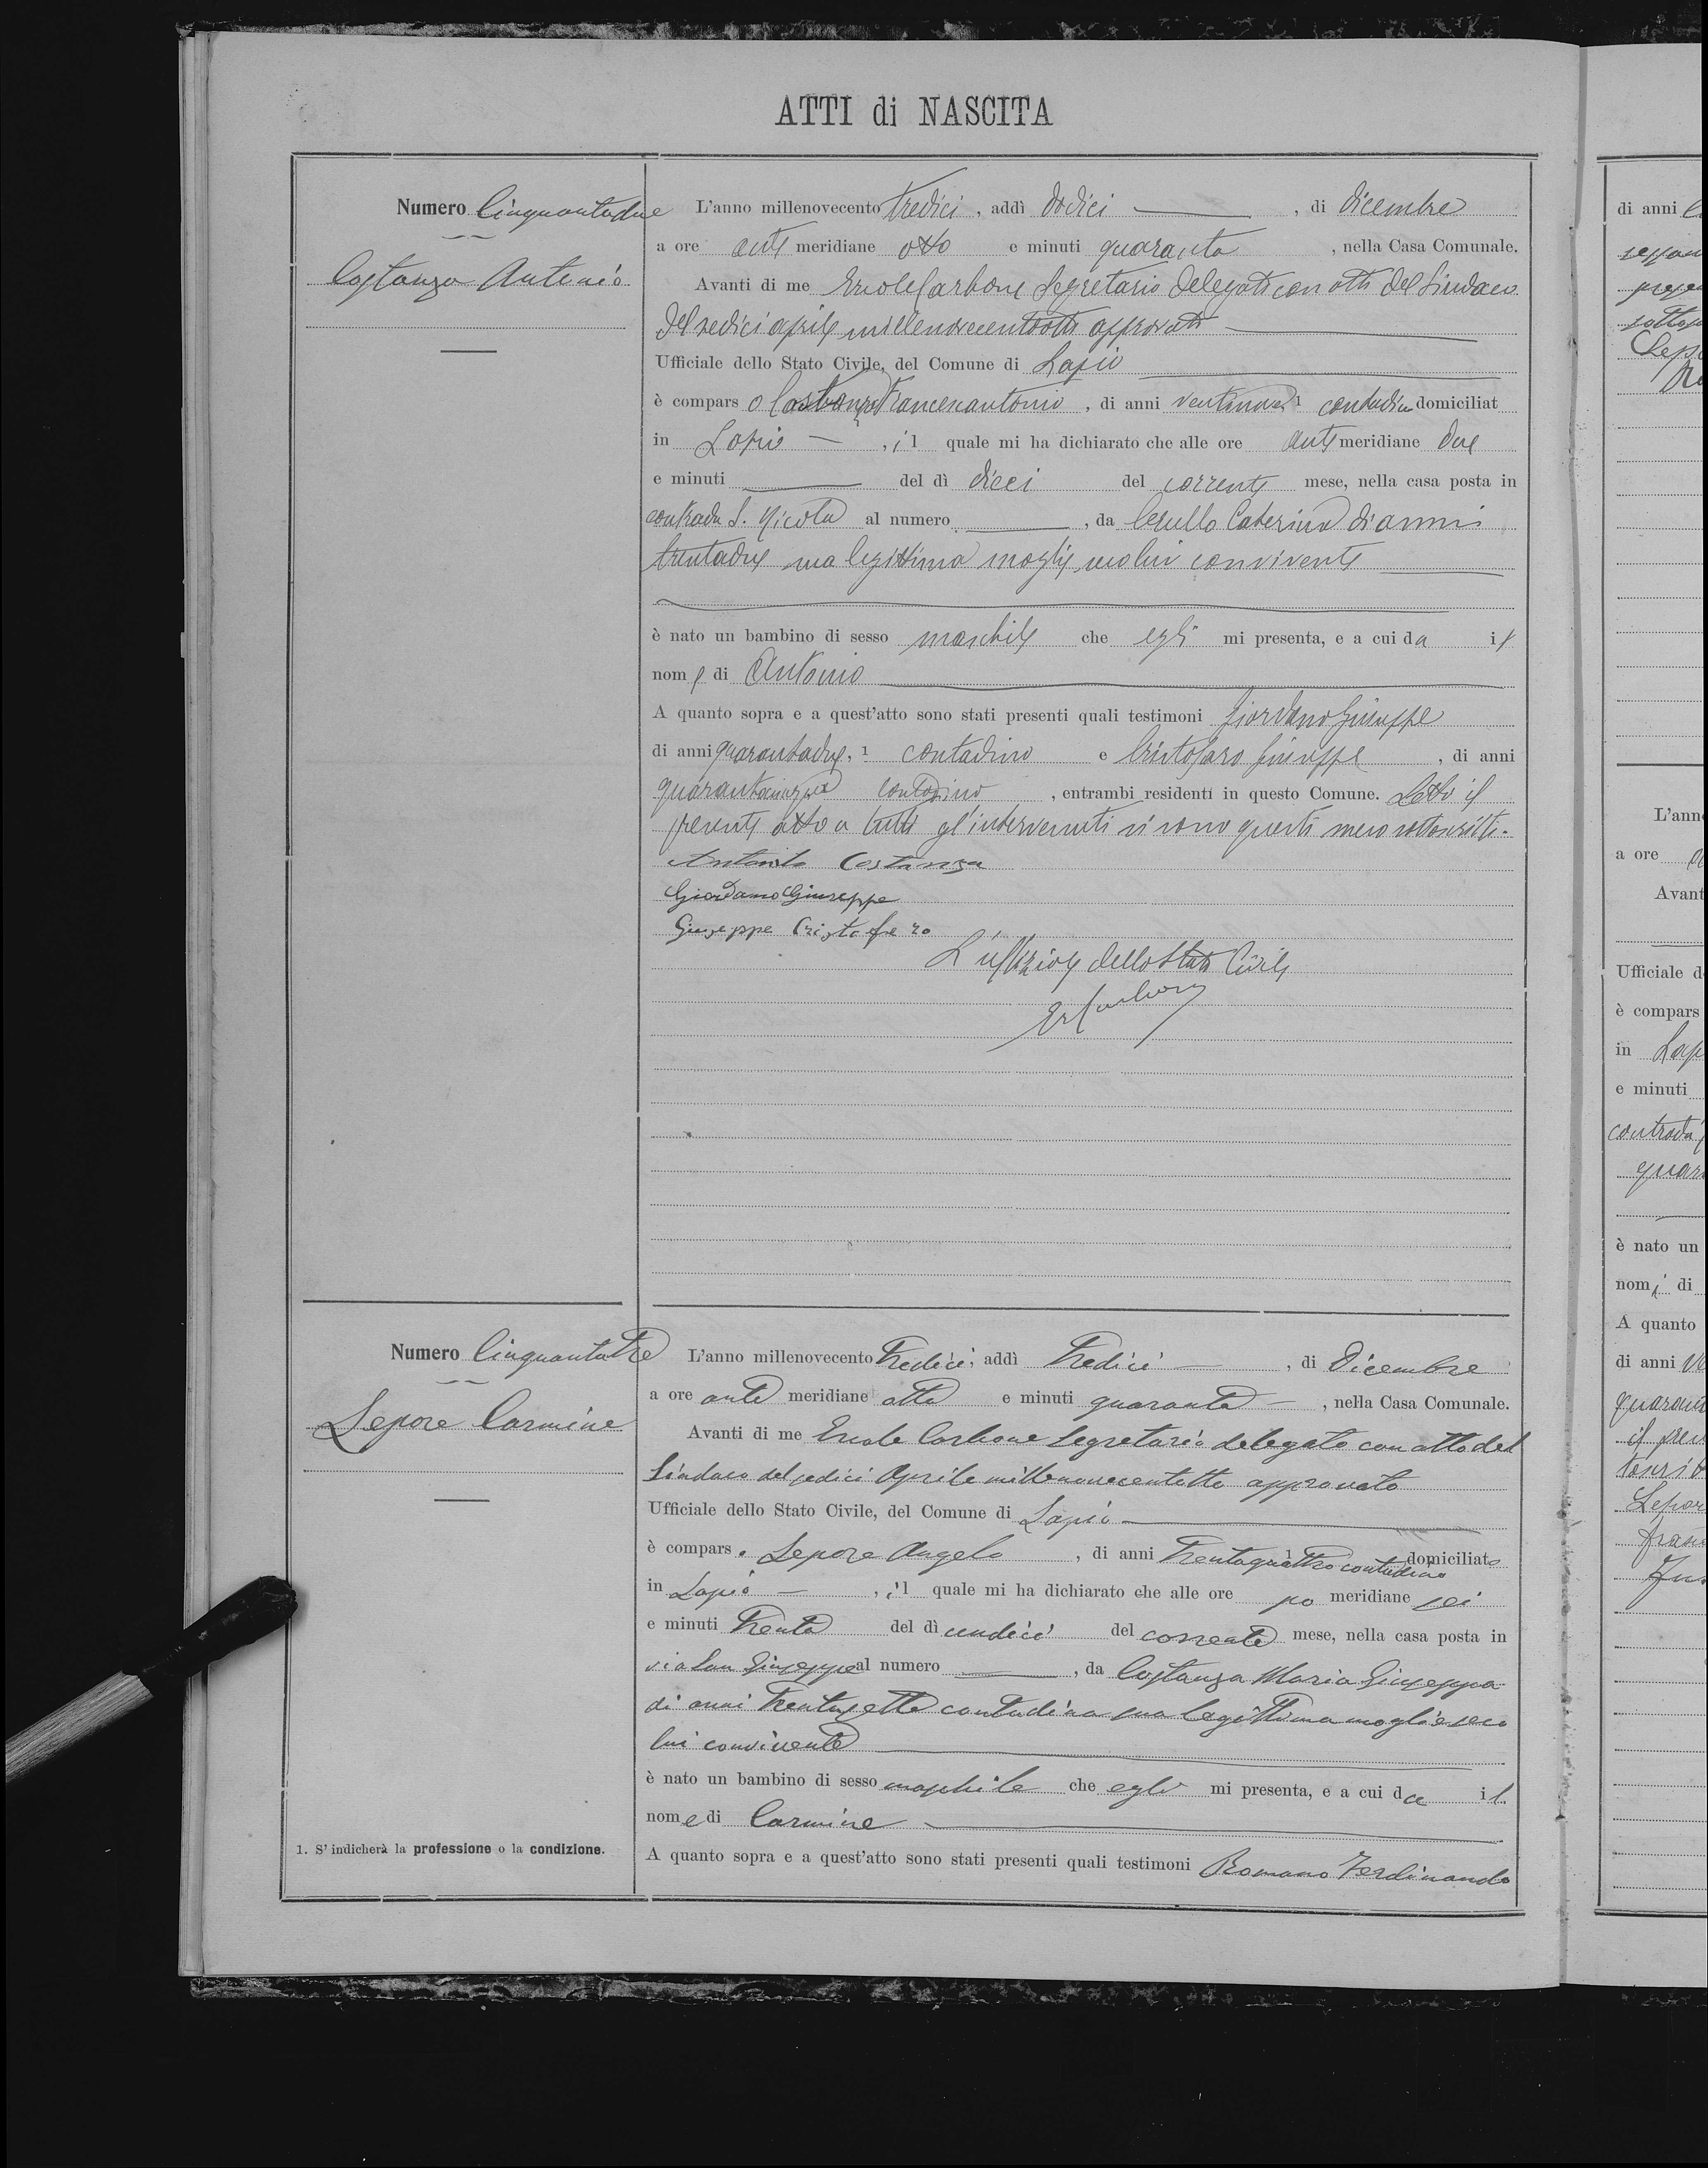 ATTI di NASCITA
Numero Cinquantadue
Costanza Antonio
L'anno millenovecento tredici, addì dodici, di dicembre
a ore anti meridiane otto e minuti quaranta, nella Casa Comunale.
Avanti di me Ercole Carbone Segretario delegato con atto del Sindaco
del sedici aprile millenovecentootto approvato
Ufficiale dello Stato Civile, del Comune di Lapio
è comparso Costanza Francescantonio, di anni ventinove, 1 contadino domiciliat
in Lapio, il quale mi ha dichiarato che alle ore anti meridiane due
e minuti del dì dieci del corrente mese, nella casa posta in
contrada S. Nicola al numero, da Cerullo Caterina di anni
trentadue sua legittima moglie seco lui convivente
è nato un bambino di sesso maschile che egli mi presenta, e a cui da il
nome di Antonio
A quanto sopra e a quest'atto sono stati presenti quali testimoni Giordano Giuseppe
di anni quarantadue, 1 contadino e Cristofaro Giuseppe, di anni
quarantacinque contadino, entrambi residenti in questo Comune. Letto il
presente atto a tutti gl'intervenuti si sono questi meco sottoscritti.
Costanza
Giordano Giuseppe
Giuseppe Cristofero
L'uffiziale dello Stato Civile
E. Carbone
Numero Cinquantatre
Lepore Carmine
L'anno millenovecento tredici, addì tredici, di Dicembre
a ore ante meridiane otto e minuti quaranta, nella Casa Comunale.
Avanti di me Ercole Carbone Segretario delegato con atto del
Sindaco del sedici Aprile millenovecentotto approvato
Ufficiale dello Stato Civile, del Comune di Lapio
è comparso Lepore Angelo, di anni trentaquattro 1 contadino domiciliato
in Lapio, il quale mi ha dichiarato che alle ore po meridiane sei
e minuti trenta del dì undici del corrente mese, nella casa posta in
via San Giuseppe al numero, da Costanza Maria Giuseppa
di anni trentasette contadina sua legittima moglie seco
lui convivente
è nato un bambino di sesso maschile che egli mi presenta, e a cui da il
nome di Carmine
A quanto sopra e a quest'atto sono stati presenti quali testimoni Romano Ferdinando
1. S'indicherà la professione o la condizione.
di anni
L'ann
a ore
Avant
Ufficiale d
è compars
in Lap
e minuti
contrada
quar
è nato un
nomi di
A quanto
di anni
il pres
Lepor